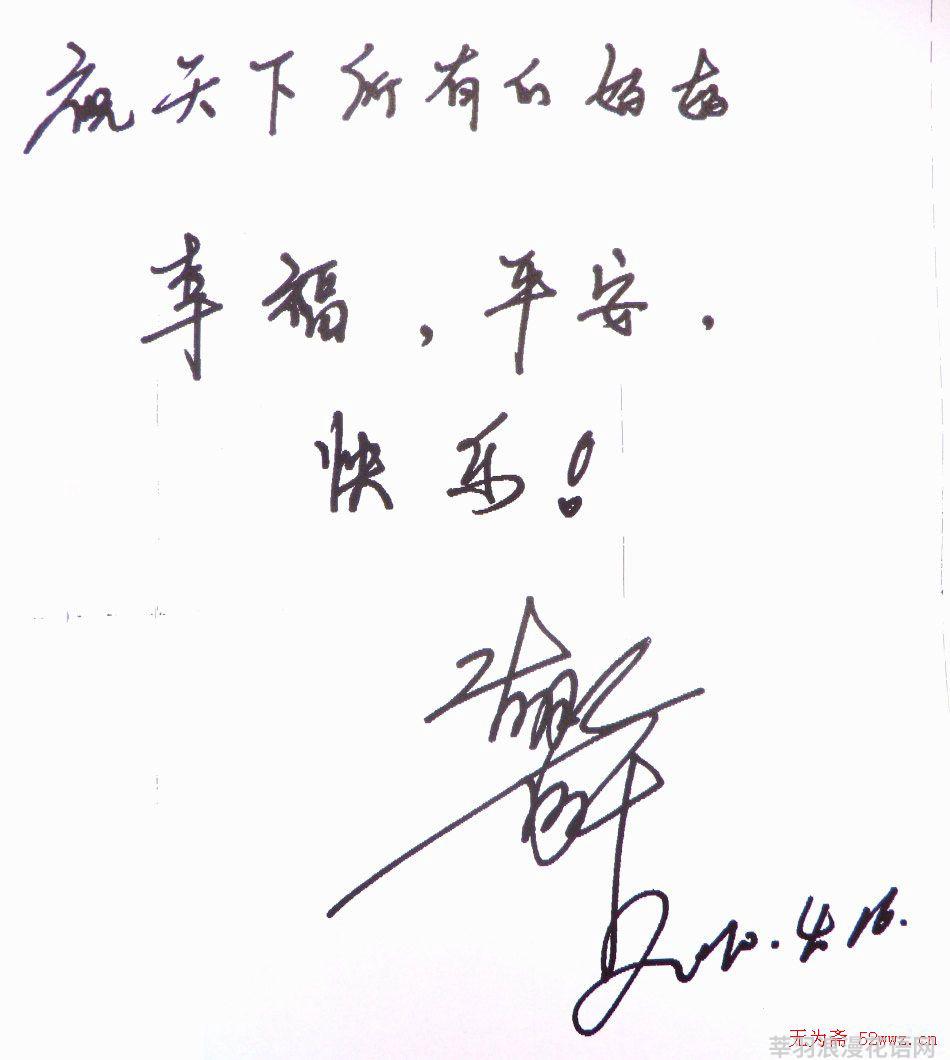 祝天下所有的妈妈
幸福，平安，
快乐！
2010.4.16.
无为斋 52wwz.cn
莘羽浪漫花语网